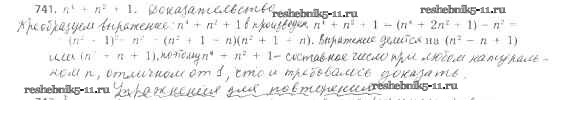 741. n⁴ + n² + 1. Доказательство reshebnik5-11.ru
Преобразуем выражение: n⁴ + n² + 1 в произведен. n⁴ + n² + 1 = (n⁴ + 2n² + 1) − n² =
(n² + 1)² − n² = (n² + 1 − n)(n² + 1 + n). Выражение делится на (n² − n + 1)
или (n² + n + 1), потому n⁴ + n² + 1 − составное число при любом натураль-
ном n, отличном от 1, что и требовалось доказать.
reshebnik5-11.ru reshebnik5-11.ru
Упражнения для повторения